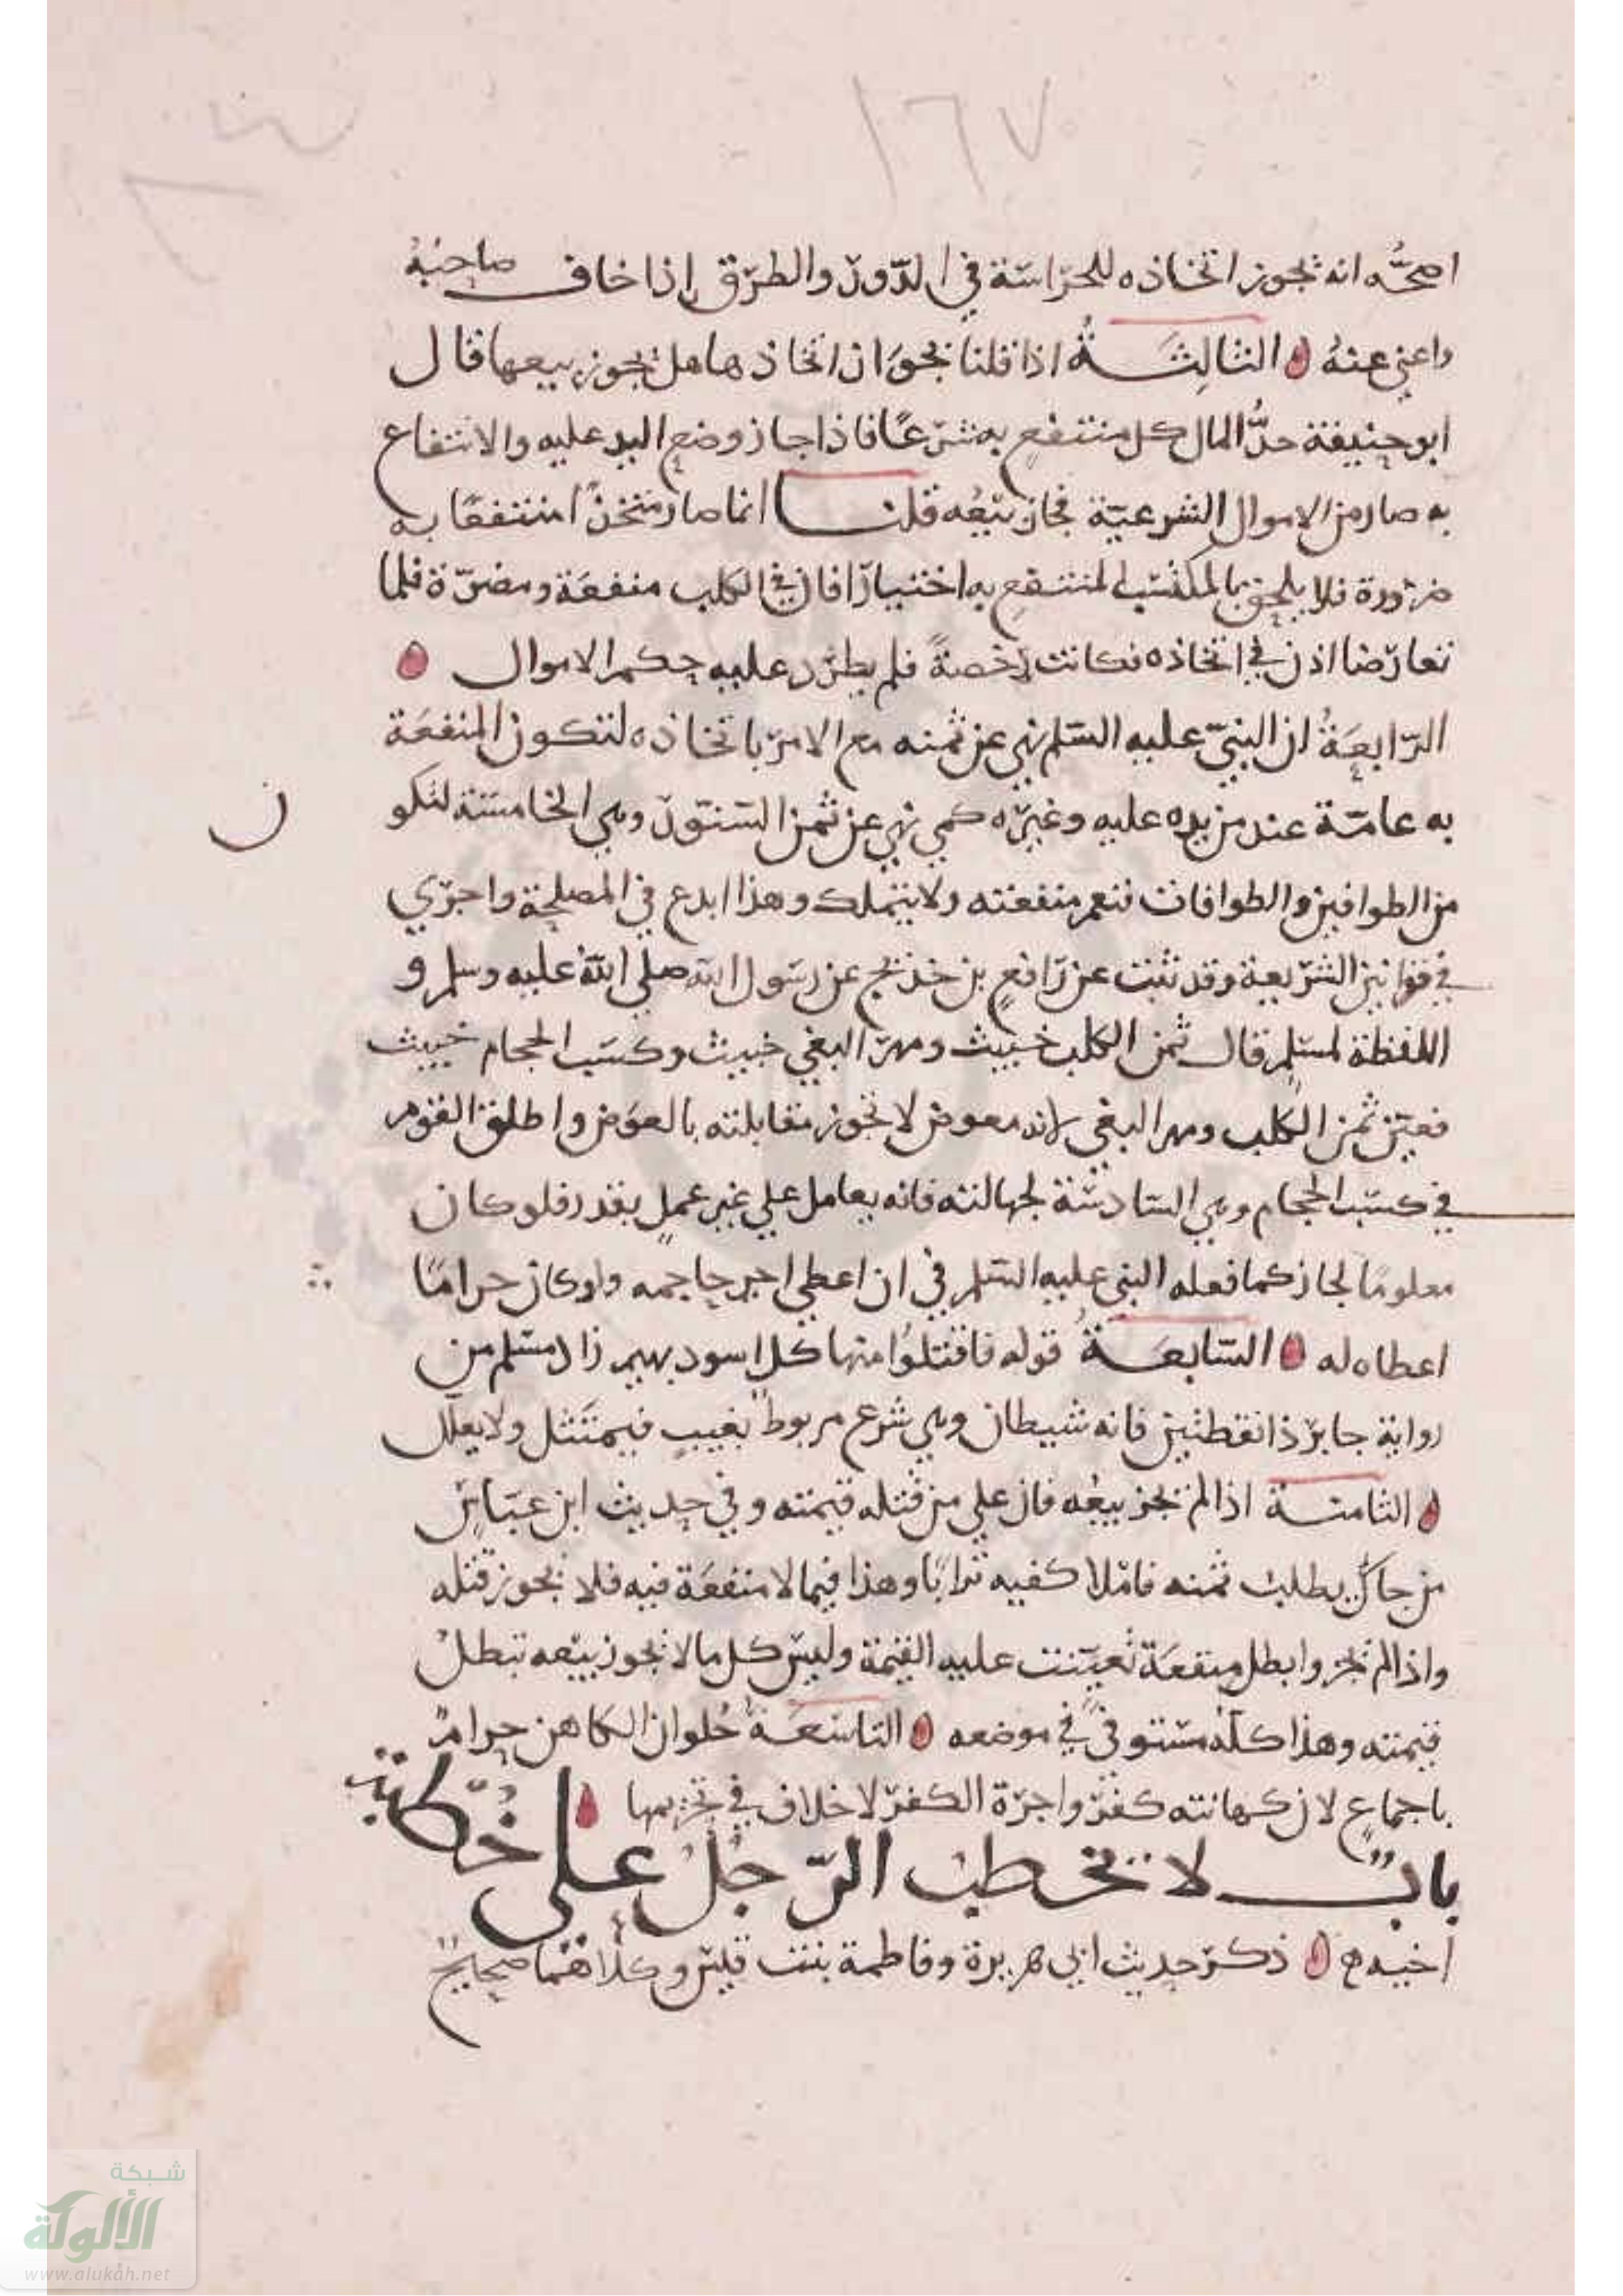 ١٦٧
اصحُّه انه يجوز اتخاذه للحراسة في الدور والطرق إذا خاف صاحبهُ
واعني عنهُ ە الثالِثَــةُ اذا قلنا بجوَاز اتخاذها هل يجوز بيعها قال
ابو حنيفة حدُّ المال كل منتفعٍ به شرعًا فاذا جاز وضع اليد عليه والانتفاع
به صار من الاموال الشرعيّة فجاز بيعُه قلنــا انما صار متخذًا منتفعًا به
ضرورة فلا يلحق بالمكتسب المنتفعِ به اختيارًا فان في الكلب منفعَة ومضرّة فلما
تعارضا اذن في اتخاذه فكانت رخصةً فلم يطرد عليه حكم الاموال ە
الرّابعَةُ ان النبيّ عليه السّلم نهي عن ثمنه مع الامر باتخاذه لتكون المنفعَة
به عامّة عند من يده عليه وغيره كمي نهي عن ثمن السّنّور وهي الخامسة لتكو
ن
من الطوافين والطوافات فتعم منفعته ولا يتملك وهذا ابدع في المصلحة واجري
في قوانين الشريعة وقد ثبت عن رافعٍ بن خديج عن رسول الله صلي الله عليه وسلم و
اللفظة لمسلم قال ثمن الكلب خبيث ومهر البغي خبيث وكسب الحجام خبيث
فعيّن ثمن الكلب ومهر البغي لانه معوض لا تجوز مقابلته بالعوَض واطلق القوم
في كسب الحجام وهي السّادسَة لجهالته فانه يعامل علي غير عملٍ يقدر فلو كان
معلومًا لجاز كما فعله النبي عليه السّلم في ان اعطي اجر حاجمه ولو كان حرامًا
اعطاه له ە السّابعَــةُ قوله فاقتلوُا منها كل اسود بهيم زاد مسلم من
رواية جابر ذا نقطتين فانه شيطان وهي شرع مربوط بغيبٍ فيمتثل ولا يعلّل
ە الثامنــة اذا لم يجز بيعُه فان علي من قتله قيمته وفي حديث ابن عبّاس
من جاك يطلب ثمنه فاملا كفيه ترابًا وهذا فيما لا منفعَة فيه فلا يجوز قتله
واذا لم يجز وابطل منفعَة تعيّنت عليه القيمة وليس كل ما لا يجوز بيعه تبطل
قيمته وهذا كله مستوفيً في موضعه ە التاسعَــة حُلوان الكاهن حرامٌ
باجماعٍ لان كهانته كفر واجرة الكفر لا خلاف في تحريمها ە
بابٌ لا يخطب الرّجُلُ علي خطبة
اخيه ە ذكر حديث ابي هريرة وفاطمة بنت قيس وكلاهُما صحيحٌ
شبكة
الألوكة
www.alukah.net